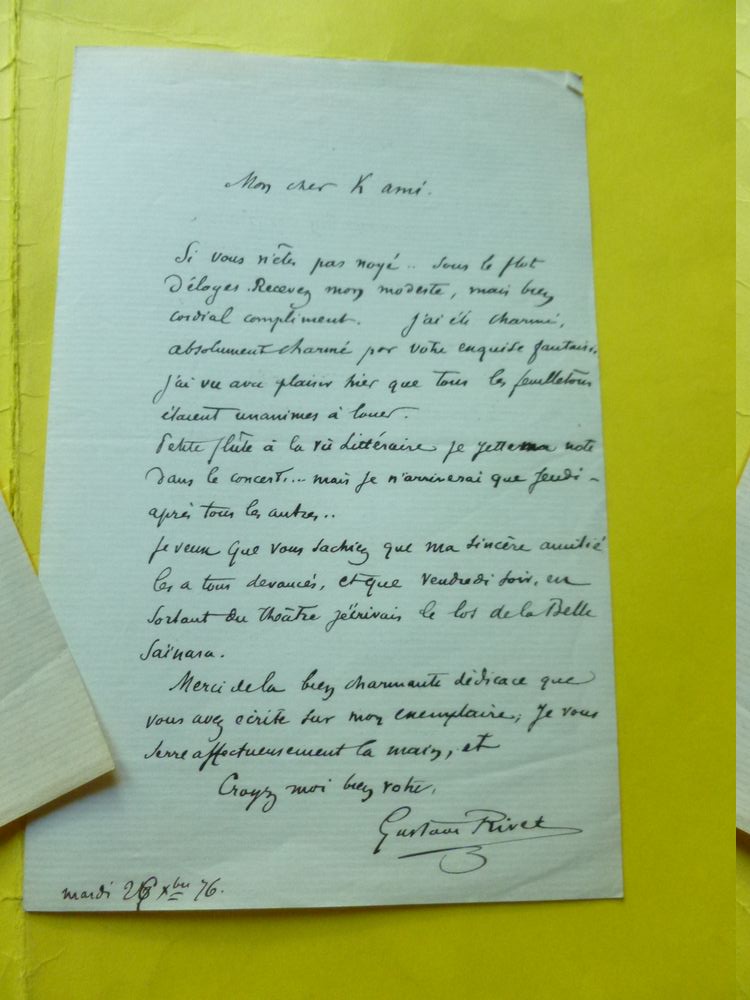 Mon cher K ami.
Si vous n'êtes pas noyé .. sous le flot
d'éloges. Recevez mon modeste, mais bien
cordial compliment. J'ai été charmé,
absolument charmé par votre exquise fantaisie.
J'ai vu avec plaisir hier que tous les feuilletons
étaient unanimes à louer.
Petite flûte à la vie Littéraire je jette ma note
dans le concert.... mais je n'arriverai que Jeudi -
après tous les autres..
Je veux que vous sachiez que ma sincère amitié
les a tous devancés, et que vendredi soir, en
sortant du théâtre j'écrivais le los de la Belle
Saïnara.
Merci de la bien charmante dédicace que
vous avez écrite sur mon exemplaire; Je vous
serre affectueusement la main, et
Croyez moi bien votre,
Gustave Rivet
mardi 26 xbre 76.